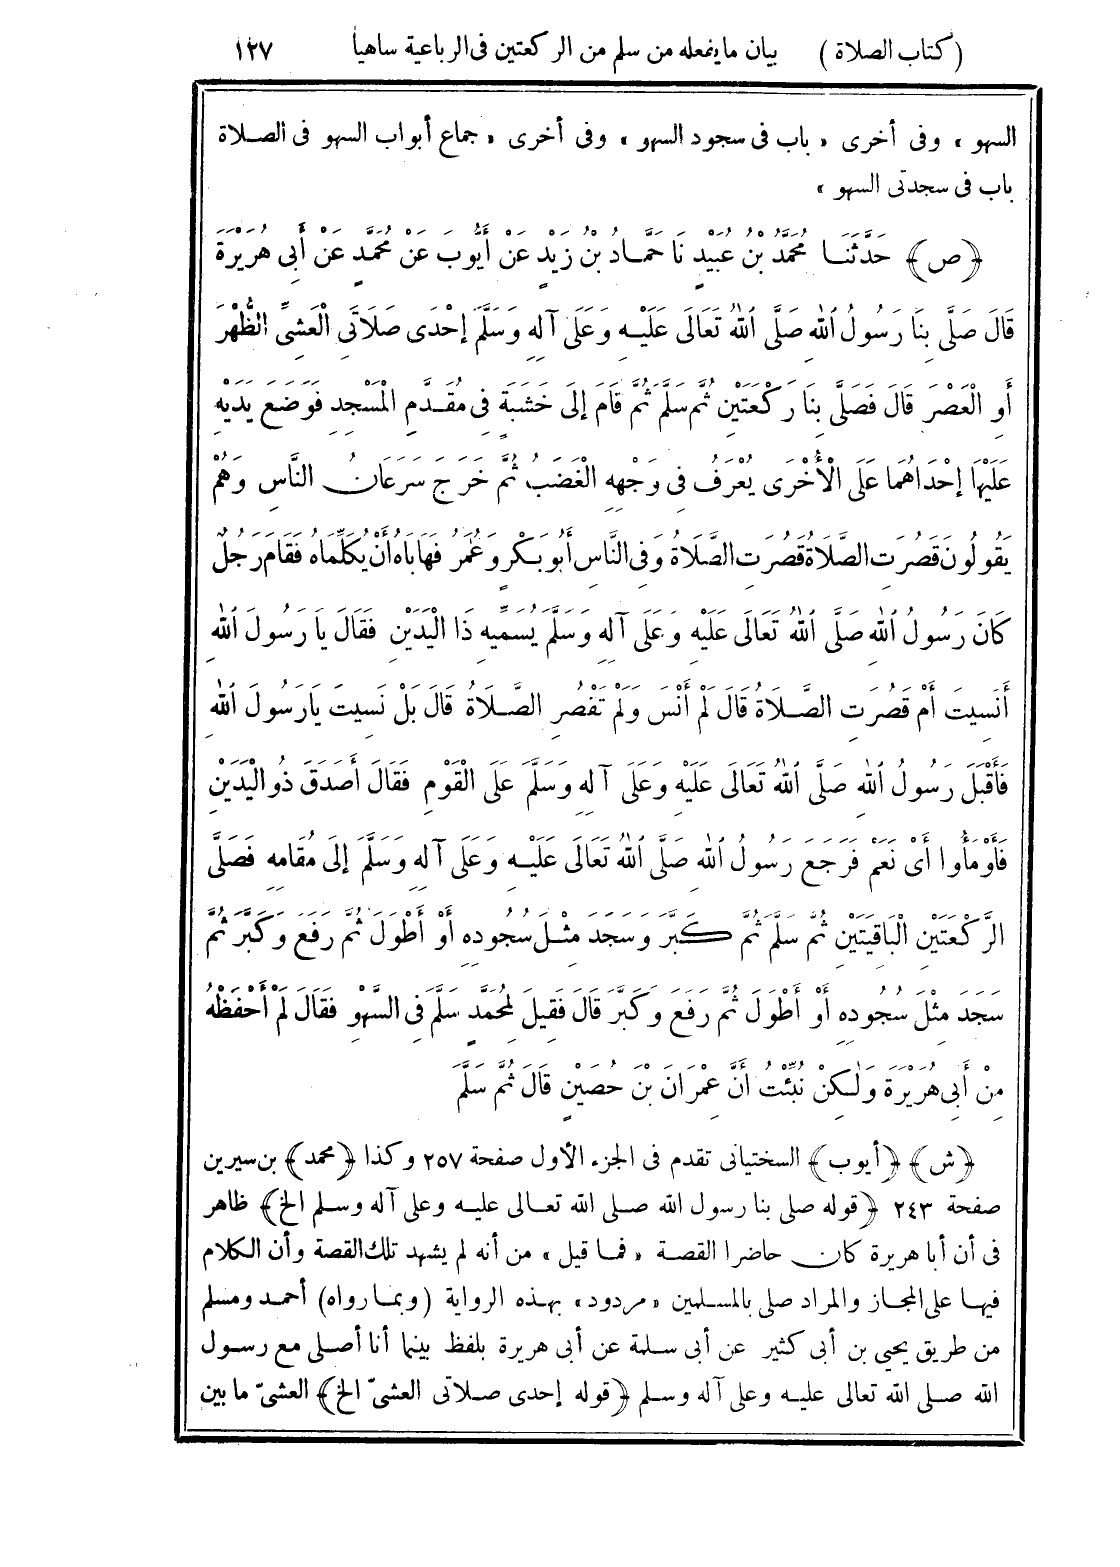 ( كتاب الصلاة ) بيان ما يفعله من سلم من الركعتين فى الرباعية ساهيا ١٢٧
السهو » وفى أخرى « باب فى سجود السهو » وفى أخرى « جماع أبواب السهو فى الصلاة
باب فى سجدتى السهو »
﴿ص﴾ حَدَّثَنَا مُحَمَّدُ بْنُ عُبَيْدٍ نَا حَمَّادُ بْنُ زَيْدٍ عَنْ أَيُّوبَ عَنْ مُحَمَّدٍ عَنْ أَبِى هُرَيْرَةَ
قَالَ صَلَّى بِنَا رَسُولُ اللهِ صَلَّى اللهُ تَعَالَى عَلَيْهِ وَعَلَى آلِهِ وَسَلَّمَ إِحْدَى صَلَاتَىِ الْعَشِىِّ الظُّهْرَ
أَوِ الْعَصْرَ قَالَ فَصَلَّى بِنَا رَكْعَتَيْنِ ثُمَّ سَلَّمَ ثُمَّ قَامَ إِلَى خَشَبَةٍ فِى مُقَدَّمِ الْمَسْجِدِ فَوَضَعَ يَدَيْهِ
عَلَيْهَا إِحْدَاهُمَا عَلَى الْأُخْرَى يُعْرَفُ فِى وَجْهِهِ الْغَضَبُ ثُمَّ خَرَجَ سَرَعَانُ النَّاسِ وَهُمْ
يَقُولُونَ قَصُرَتِ الصَّلَاةُ قَصُرَتِ الصَّلَاةُ وَفِى النَّاسِ أَبُو بَكْرٍ وَعُمَرُ فَهَابَاهُ أَنْ يُكَلِّمَاهُ فَقَامَ رَجُلٌ
كَانَ رَسُولُ اللهِ صَلَّى اللهُ تَعَالَى عَلَيْهِ وَعَلَى آلِهِ وَسَلَّمَ يُسَمِّيهِ ذَا الْيَدَيْنِ فَقَالَ يَا رَسُولَ اللهِ
أَنَسِيتَ أَمْ قَصُرَتِ الصَّلَاةُ قَالَ لَمْ أَنْسَ وَلَمْ تَقْصُرِ الصَّلَاةُ قَالَ بَلْ نَسِيتَ يَا رَسُولَ اللهِ
فَأَقْبَلَ رَسُولُ اللهِ صَلَّى اللهُ تَعَالَى عَلَيْهِ وَعَلَى آلِهِ وَسَلَّمَ عَلَى الْقَوْمِ فَقَالَ أَصَدَقَ ذُو الْيَدَيْنِ
فَأَوْمَأُوا أَىْ نَعَمْ فَرَجَعَ رَسُولُ اللهِ صَلَّى اللهُ تَعَالَى عَلَيْهِ وَعَلَى آلِهِ وَسَلَّمَ إِلَى مُقَامِهِ فَصَلَّى
الرَّكْعَتَيْنِ الْبَاقِيَتَيْنِ ثُمَّ سَلَّمَ ثُمَّ كَبَّرَ وَسَجَدَ مِثْلَ سُجُودِهِ أَوْ أَطْوَلَ ثُمَّ رَفَعَ وَكَبَّرَ ثُمَّ
سَجَدَ مِثْلَ سُجُودِهِ أَوْ أَطْوَلَ ثُمَّ رَفَعَ وَكَبَّرَ قَالَ فَقِيلَ لِمُحَمَّدٍ سَلَّمَ فِى السَّهْوِ فَقَالَ لَمْ أَحْفَظْهُ
مِنْ أَبِى هُرَيْرَةَ وَلَكِنْ نُبِّئْتُ أَنَّ عِمْرَانَ بْنَ حُصَيْنٍ قَالَ ثُمَّ سَلَّمَ
﴿ش﴾ ﴿أيوب﴾ السختيانى تقدم فى الجزء الأول صفحة ٢٥٧ وكذا ﴿محمد﴾ بن سيرين
صفحة ٢٤٣ ﴿قوله صلى بنا رسول الله صلى الله تعالى عليه وعلى آله وسلم الخ﴾ ظاهر
فى أن أبا هريرة كان حاضرا القصة « فما قيل » من أنه لم يشهد تلك القصة وأن الكلام
فيها على المجاز والمراد صلى بالمسلمين « مردود » بهذه الرواية (وبما رواه) أحمد ومسلم
من طريق يحيى بن أبى كثير عن أبى سلمة عن أبى هريرة بلفظ بينما أنا أصلى مع رسول
الله صلى الله تعالى عليه وعلى آله وسلم ﴿قوله إحدى صلاتى العشىّ الخ﴾ العشىّ ما بين